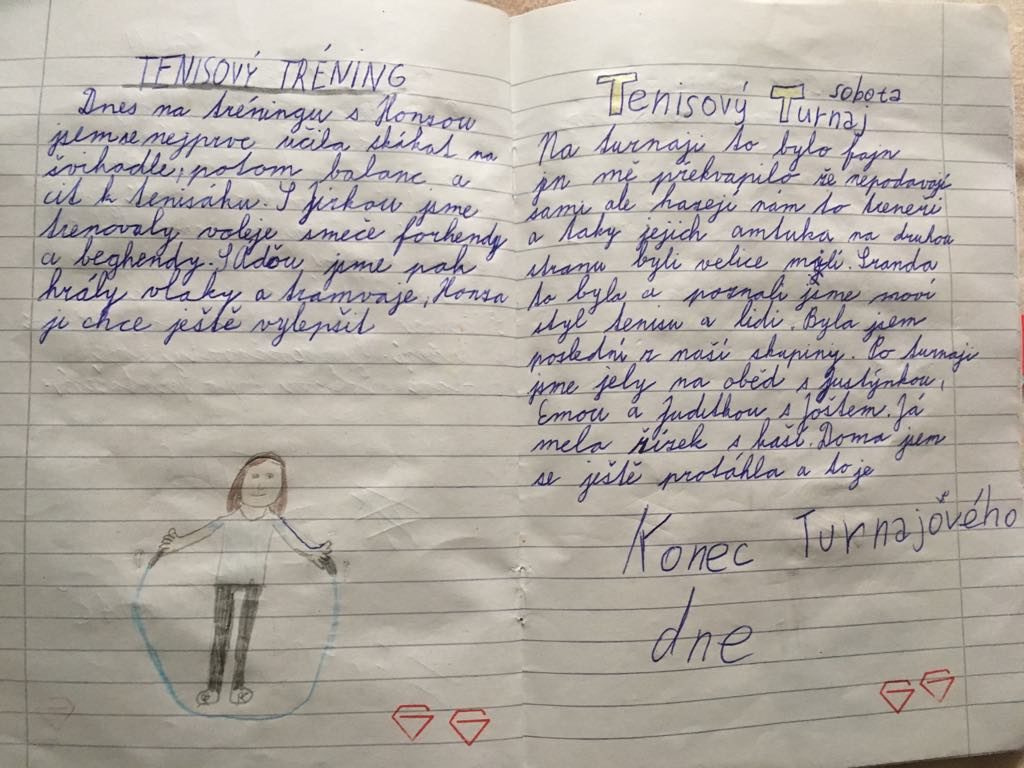 TENISOVÝ TRÉNING
Dnes na tréningu s Honzou
jsem se nejprve učila skákat na
švihadle, potom balanc a
cit k tenisáku. S Jirkou jsme
trenovaly voleje smeče forhendy
a beghendy. S Áďou jsme pak
hrály vlaky a tramvaje, Honza
ji chce ještě vylepšit
Tenisový Turnaj sobota
Na turnaji to bylo fajn
jn mě překvapilo že nepodavají
sami ale hazejí nám to treneři
a taky jejich amtuka na druhou
stranu byli velice milí. Sranda
to byla a poznali jsme noví
styl tenisu a lidi. Byla jsem
poslední z naší skupiny. Po turnaji
jsme jely na oběd s Justýnkou,
Emou a Juditkou s Joštem. Já
mela řízek s kaší. Doma jsem
se ještě protáhla a to je
Konec Turnajového
dne